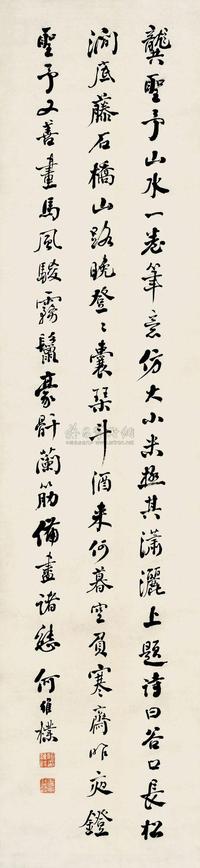 龔聖予山水一卷筆意仿大小米極其瀟灑上題詩曰谷口長松
澗底藤石橋山路晚登登囊琴斗酒來何暮空負寒齋昨夜鐙
聖予又善畫馬風駿霧鬣豪骭蘭筋備盡諸態 何維樸